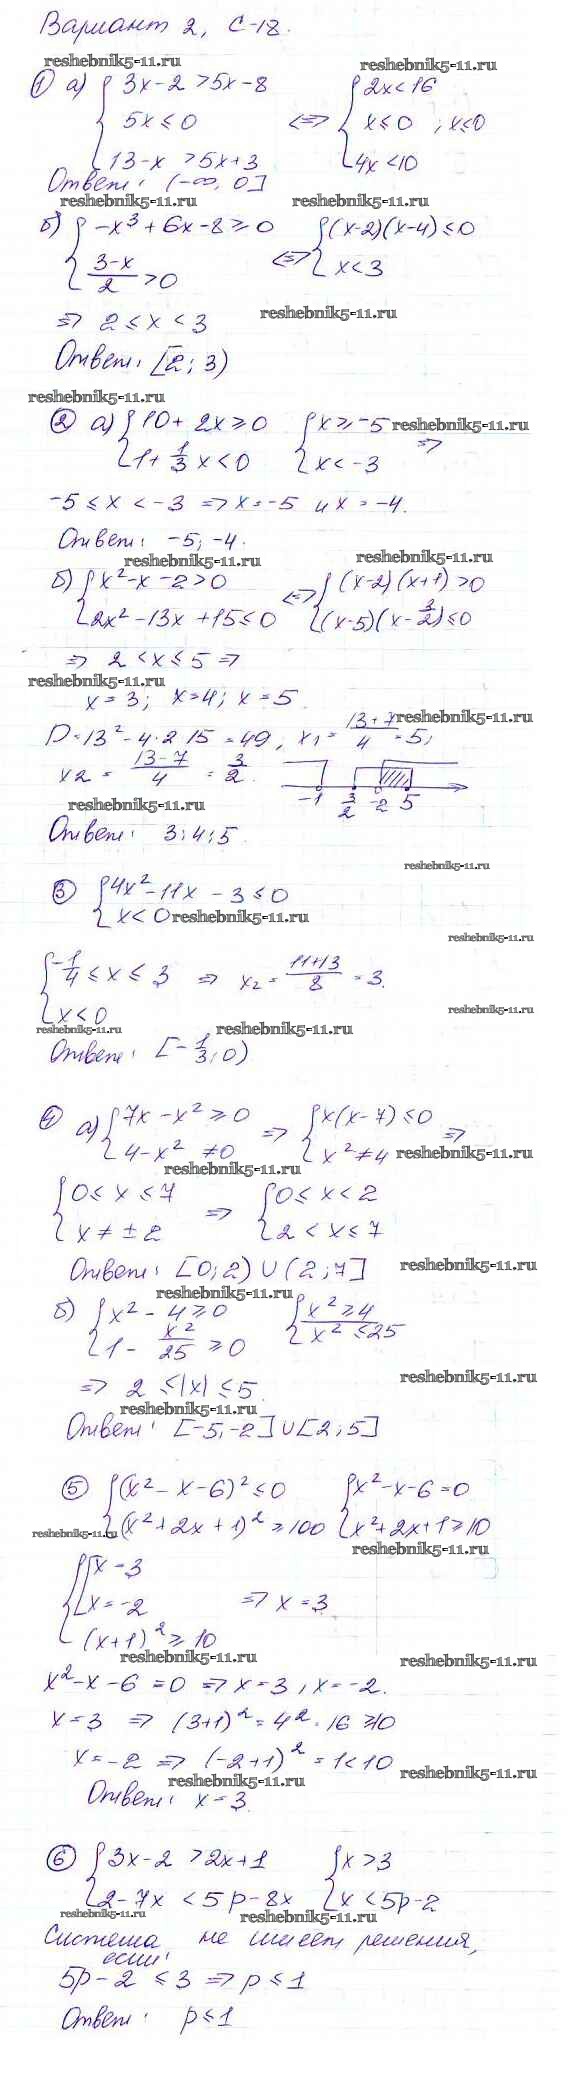 Вариант 2, С-18.
reshebnik5-11.ru reshebnik5-11.ru
① а) { 3x-2 >5x-8 { 2x<16
5x≤0 <=> x≤0 ; x≤0
13-x >5x+3 4x<10
Ответ: (-∞, 0]
reshebnik5-11.ru reshebnik5-11.ru
б) { -x³+6x-8≥0 { (x-2)(x-4)≤0
(3-x)/2 >0 <=> x<3
=> 2≤x<3 reshebnik5-11.ru
Ответ: [2; 3)
reshebnik5-11.ru
② а) { 10+2x≥0 { x≥-5 reshebnik5-11.ru
1+1/3 x<0 x<-3 =>
-5≤x<-3 => x=-5 и x=-4.
Ответ: -5; -4.
reshebnik5-11.ru reshebnik5-11.ru
б) { x²-x-2>0 { (x-2)(x+1)>0
2x²-13x+15≤0 <=> (x-5)(x-3/2)≤0
=> 2<x≤5 =>
reshebnik5-11.ru
x=3; x=4; x=5.
D=13²-4·2·15=49, x1=(13+7)/4=5; reshebnik5-11.ru
x2 = (13-7)/4 = 3/2.
-1 3/2 -2 5
reshebnik5-11.ru
Ответ: 3; 4; 5.
reshebnik5-11.ru
③ { 4x²-11x-3≤0
x<0 reshebnik5-11.ru
reshebnik5-11.ru
{ -1/4≤x≤3 => x2=(11+13)/8=3.
x<0
reshebnik5-11.ru reshebnik5-11.ru reshebnik5-11.ru
Ответ: [-1/3; 0)
④ а) { 7x-x²≥0 => { x(x-7)≤0 =>
4-x²≠0 x²≠4 reshebnik5-11.ru
reshebnik5-11.ru
{ 0≤x≤7 => { 0≤x<2
x≠±2 2<x≤7
Ответ: [0; 2)∪(2; 7] reshebnik5-11.ru
reshebnik5-11.ru
б) { x²-4≥0 { x²≥4
1-x²/25≥0 x²≤25
=> 2≤|x|≤5. reshebnik5-11.ru
reshebnik5-11.ru
Ответ: [-5;-2]∪[2; 5]
⑤ { (x²-x-6)²≤0 { x²-x-6=0
(x²+2x+1)²≥100 x²+2x+1≥10
reshebnik5-11.ru reshebnik5-11.ru
{ [ x=3
x=-2 => x=3
(x+1)²≥10
reshebnik5-11.ru reshebnik5-11.ru
x²-x-6=0 => x=3, x=-2.
x=3 => (3+1)²=4²=16≥10
x=-2 => (-2+1)²=1<10
reshebnik5-11.ru reshebnik5-11.ru
Ответ: x=3.
⑥ { 3x-2>2x+1 { x>3
2-7x<5p-8x x<5p-2
reshebnik5-11.ru reshebnik5-11.ru
Система не имеет решения,
если:
5p-2≤3 => p≤1
Ответ: p≤1